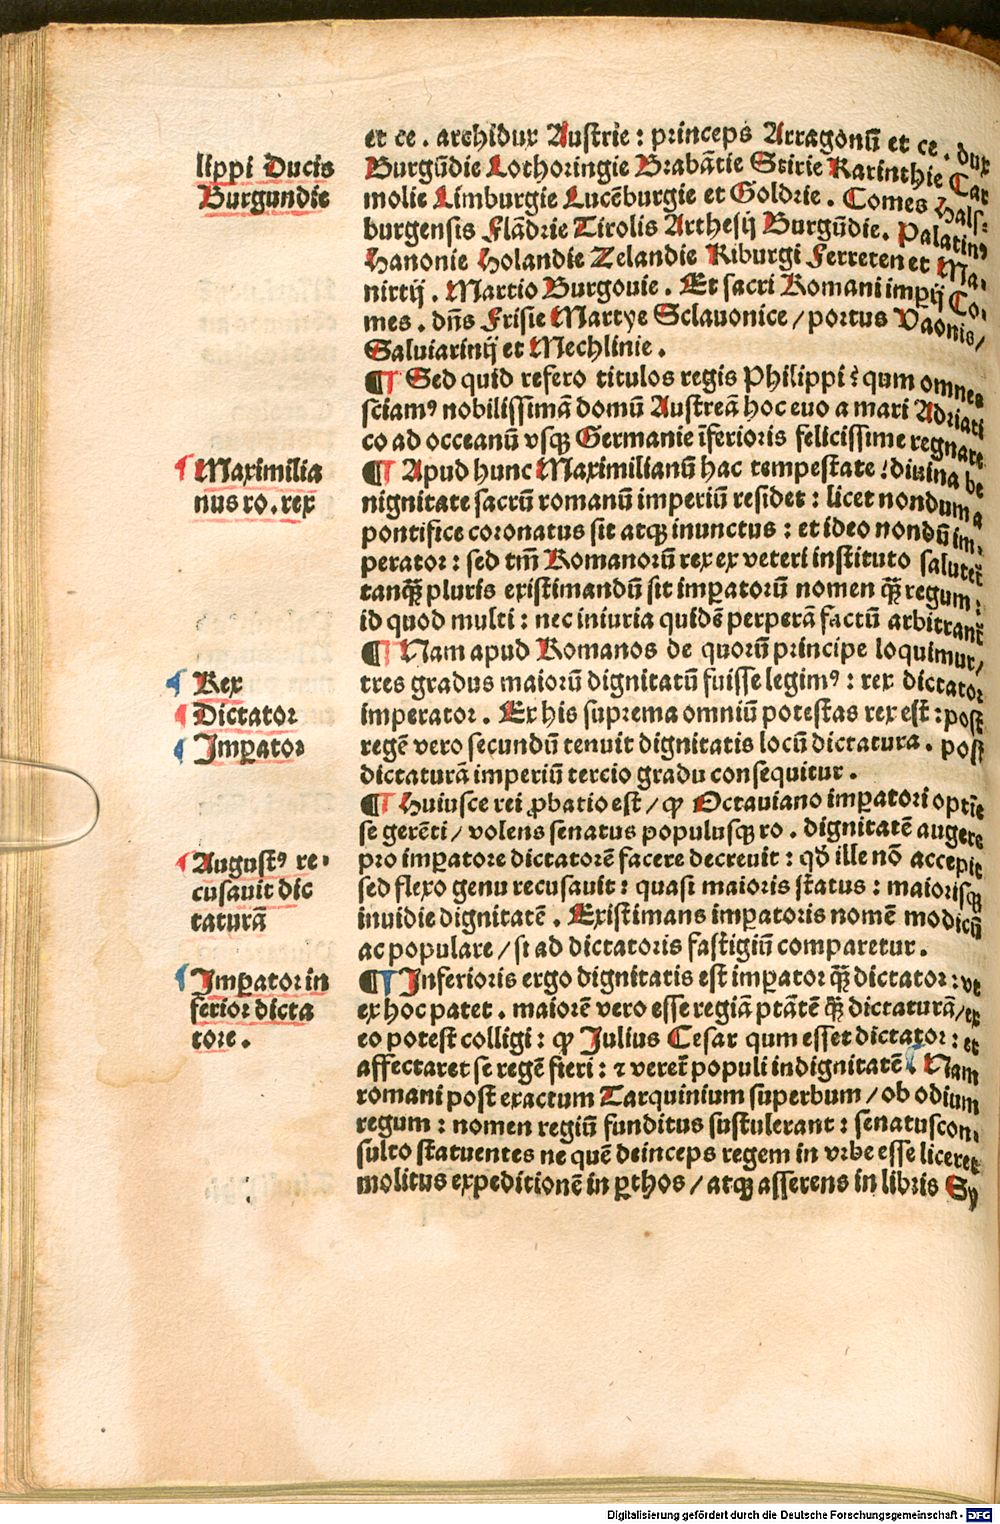 et ce . archidux Austrie : princeps Arragonū et ce . dux
Burgūdie Lothoringie Brabātie Stirie Karinthie Car
molie Limburgie Lucēburgie et Goldrie . Comes Hals⸗
burgensis Flādrie Tirolis Arthesij Burgūdie. Palatinꝰ
Hanonie Holandie Zelandie Kiburgi Ferreten et Ma⸗
nirtij . Martio Burgouie . Et sacri Romani imperij Co⸗
mes . dn̄s Frisie Martye Sclauonice / portus Vaonis /
Saluiarinij et Mechlinie .
¶ Sed quid refero titulos regis Philippi ⁊ qum omnes
sciamꝰ nobilissimā domū Austreā hoc euo a mari Adriati
co ad occeanū vsqꝫ Germanie īferioris felicissime regnare
¶ Apud hunc Maximilianū hac tempestate : diuina be
nignitate sacrū romanū imperiū residet : licet nondum a
pontifice coronatus sit atqꝫ inunctus : et ideo nondū im⸗
perator : sed tm̄ Romanorū rex ex veteri instituto salutet᷑
tanqꝫ̄ pluris existimandū sit imꝑatorū nomen qꝫ̄ regum :
id quod multi : nec iniuria quidē perperā factū arbitrant᷑
¶ Nam apud Romanos de quorū principe loquimur /
tres gradus maiorū dignitatū fuisse legimꝰ : rex dictator
imperator . Ex his suprema omniū potestas rex est : post
regē vero secundū tenuit dignitatis locū dictatura . post
dictaturā imperiū tercio gradu consequitur .
¶ Huiusce rei ꝓbatio est / ꝙ Octauiano imꝑatori optīe
se gerēti / volens senatus populusqꝫ ro . dignitatē augere
pro imꝑatore dictatorē facere decreuit : qđ ille nō accepit
sed flexo genu recusauit : quasi maioris status : maiorisqꝫ
inuidie dignitatē . Existimans imꝑatoris nomē modicū
ac populare / si ad dictatoris fastigiū comparetur .
¶ Inferioris ergo dignitatis est imꝑator qꝫ̄ dictator : vt
ex hoc patet . maiorē vero esse regiā ptātē qꝫ̄ dictaturā / ex
eo potest colligi : ꝙ Julius Cesar qum esset dictator : et
affectaret se regē fieri : ⁊ veret᷑ populi indignitatē ¶ Nam
romani post exactum Tarquinium superbum / ob odium
regum : nomen regiū funditus sustulerant : senatuscon⸗
sulto statuentes ne quē deinceps regem in vrbe esse liceret
molitus expeditionē in ꝑthos / atqꝫ asserens in libris Sy
lippi Ducis
Burgundie
Maximilia
nus ro . rex
Rex
Dictator
Imꝑator
Augustꝰ re⸗
cūsauit dic
taturā
Imꝑator in
ferior dicta
tore .
Digitalisierung gefördert durch die Deutsche Forschungsgemeinschaft - DFG